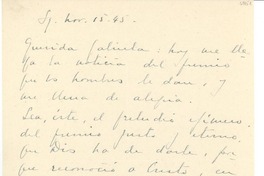 Sg. Nov. 15-45-
Querida Gabriela: hoy me lle
ga la noticia del premio
que los hombres le dan, y
me llena de alegría.
Sea, éste, el preludio efímero
del premio justo y eterno
que Dios ha de darle, por
que reconoció a Cristo, en